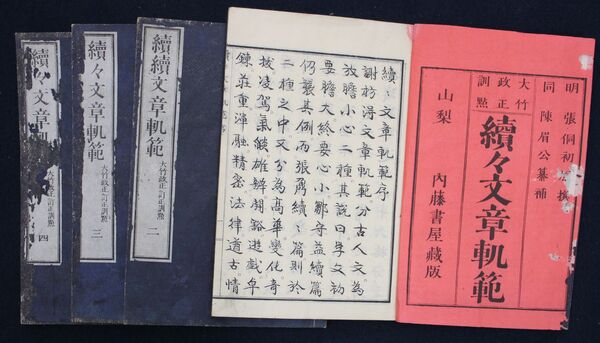 明 張侗初 撰
同 陳眉公纂補
大竹政正訓點
續々文章軌範
山梨 內藤書屋藏版
續〻文章軌範序
謝枋得文章軌範分古人文為
放膽小心二種其說曰学文初
要膽大終要心小鄒守益續篇
仍襲其例而張鼐續〻篇則於
二種之中又分為高華變化奇
拔凌駕氣雄辨翻豁遊戲卓
鍊莊重渾融精密法律遒古情
續續文章軌範 大竹政正訂正訓點 二
續々文章軌範 大竹政正訂正訓點 三
續々文章軌 大竹政正訂正訓點 四